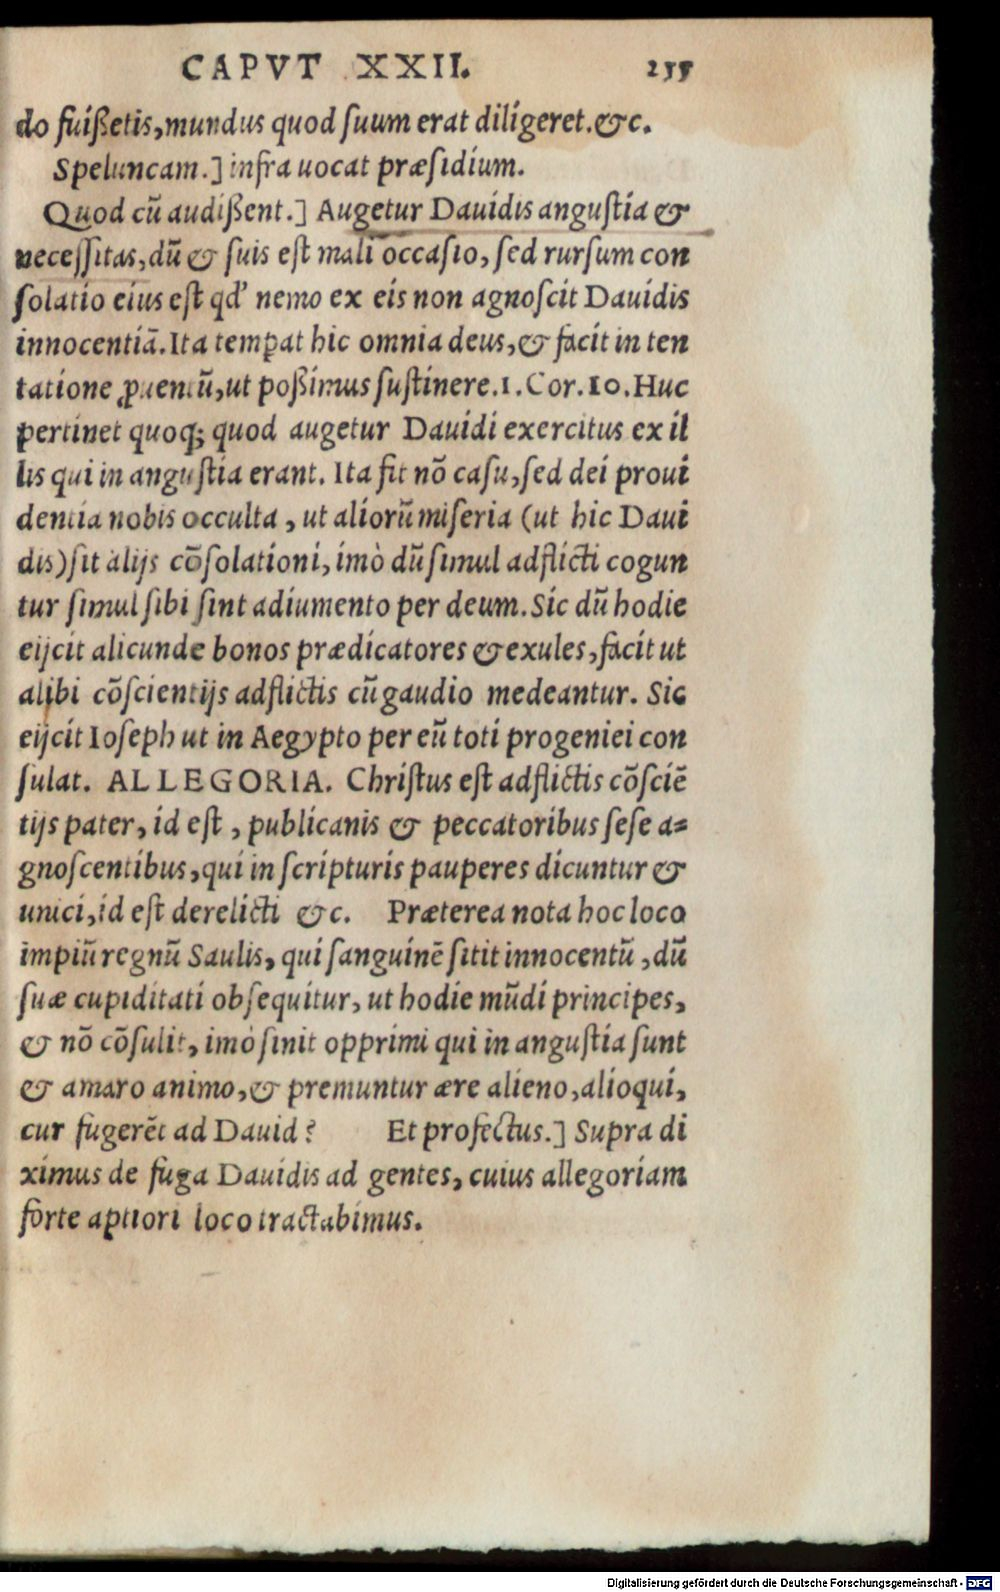 CAPVT XXII. 255
do fuißetis, mundus quod ſuum erat diligeret. &c.
Speluncam.] infra uocat præſidium.
Quod cũ audißent.] Augetur Dauidis anguſtia &
neceſſitas, dũ & ſuis eſt mali occaſio, ſed rurſum con
ſolatio eius eſt qd' nemo ex eis non agnoſcit Dauidis
innocentiã. Ita temꝑat hic omnia deus, & facit in ten
tatione ꝓuentũ, ut poßimus ſuſtinere. 1. Cor. 10. Huc
pertinet quoq; quod augetur Dauidi exercitus ex il
lis qui in anguſtia erant. Ita fit nõ caſu, ſed dei proui
dentia nobis occulta, ut aliorũ miſeria (ut hic Daui
dis) ſit alijs cõſolationi, imò dũ ſimul adflicti cogun
tur ſimul ſibi ſint adiumento per deum. Sic dũ hodie
eijcit alicunde bonos prædicatores & exules, facit ut
alibi cõſcientijs adflictis cũ gaudio medeantur. Sic
eijcit Ioſeph ut in Aegypto per eũ toti progeniei con
ſulat. ALLEGORIA. Chriſtus eſt adflictis cõſciẽ
tijs pater, id eſt, publicanis & peccatoribus ſeſe a⸗
gnoſcentibus, qui in ſcripturis pauperes dicuntur &
unici, id eſt derelicti &c. Præterea nota hoc loco
impiũ regnũ Saulis, qui ſanguinẽ ſitit innocentũ, dũ
ſuæ cupiditati obſequitur, ut hodie mũdi principes,
& nõ cõſulit, imò ſinit opprimi qui in anguſtia ſunt
& amaro animo, & premuntur ære alieno, alioqui,
cur fugerẽt ad Dauid? Et profectus.] Supra di
ximus de fuga Dauidis ad gentes, cuius allegoriam
forte aptiori loco tractabimus.
Digitalisierung gefördert durch die Deutsche Forschungsgemeinschaft - DFG